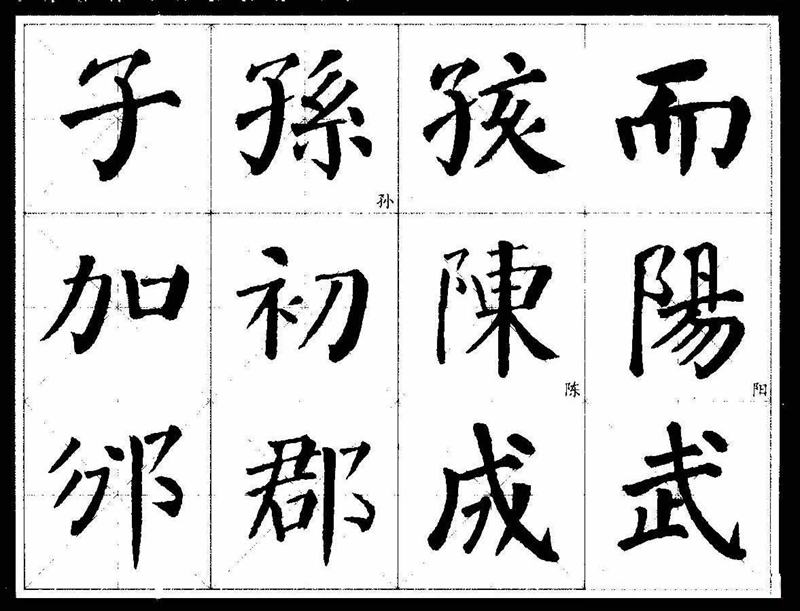 子孫孩而
孙
加初陳陽
陈 阳
邠郡成武